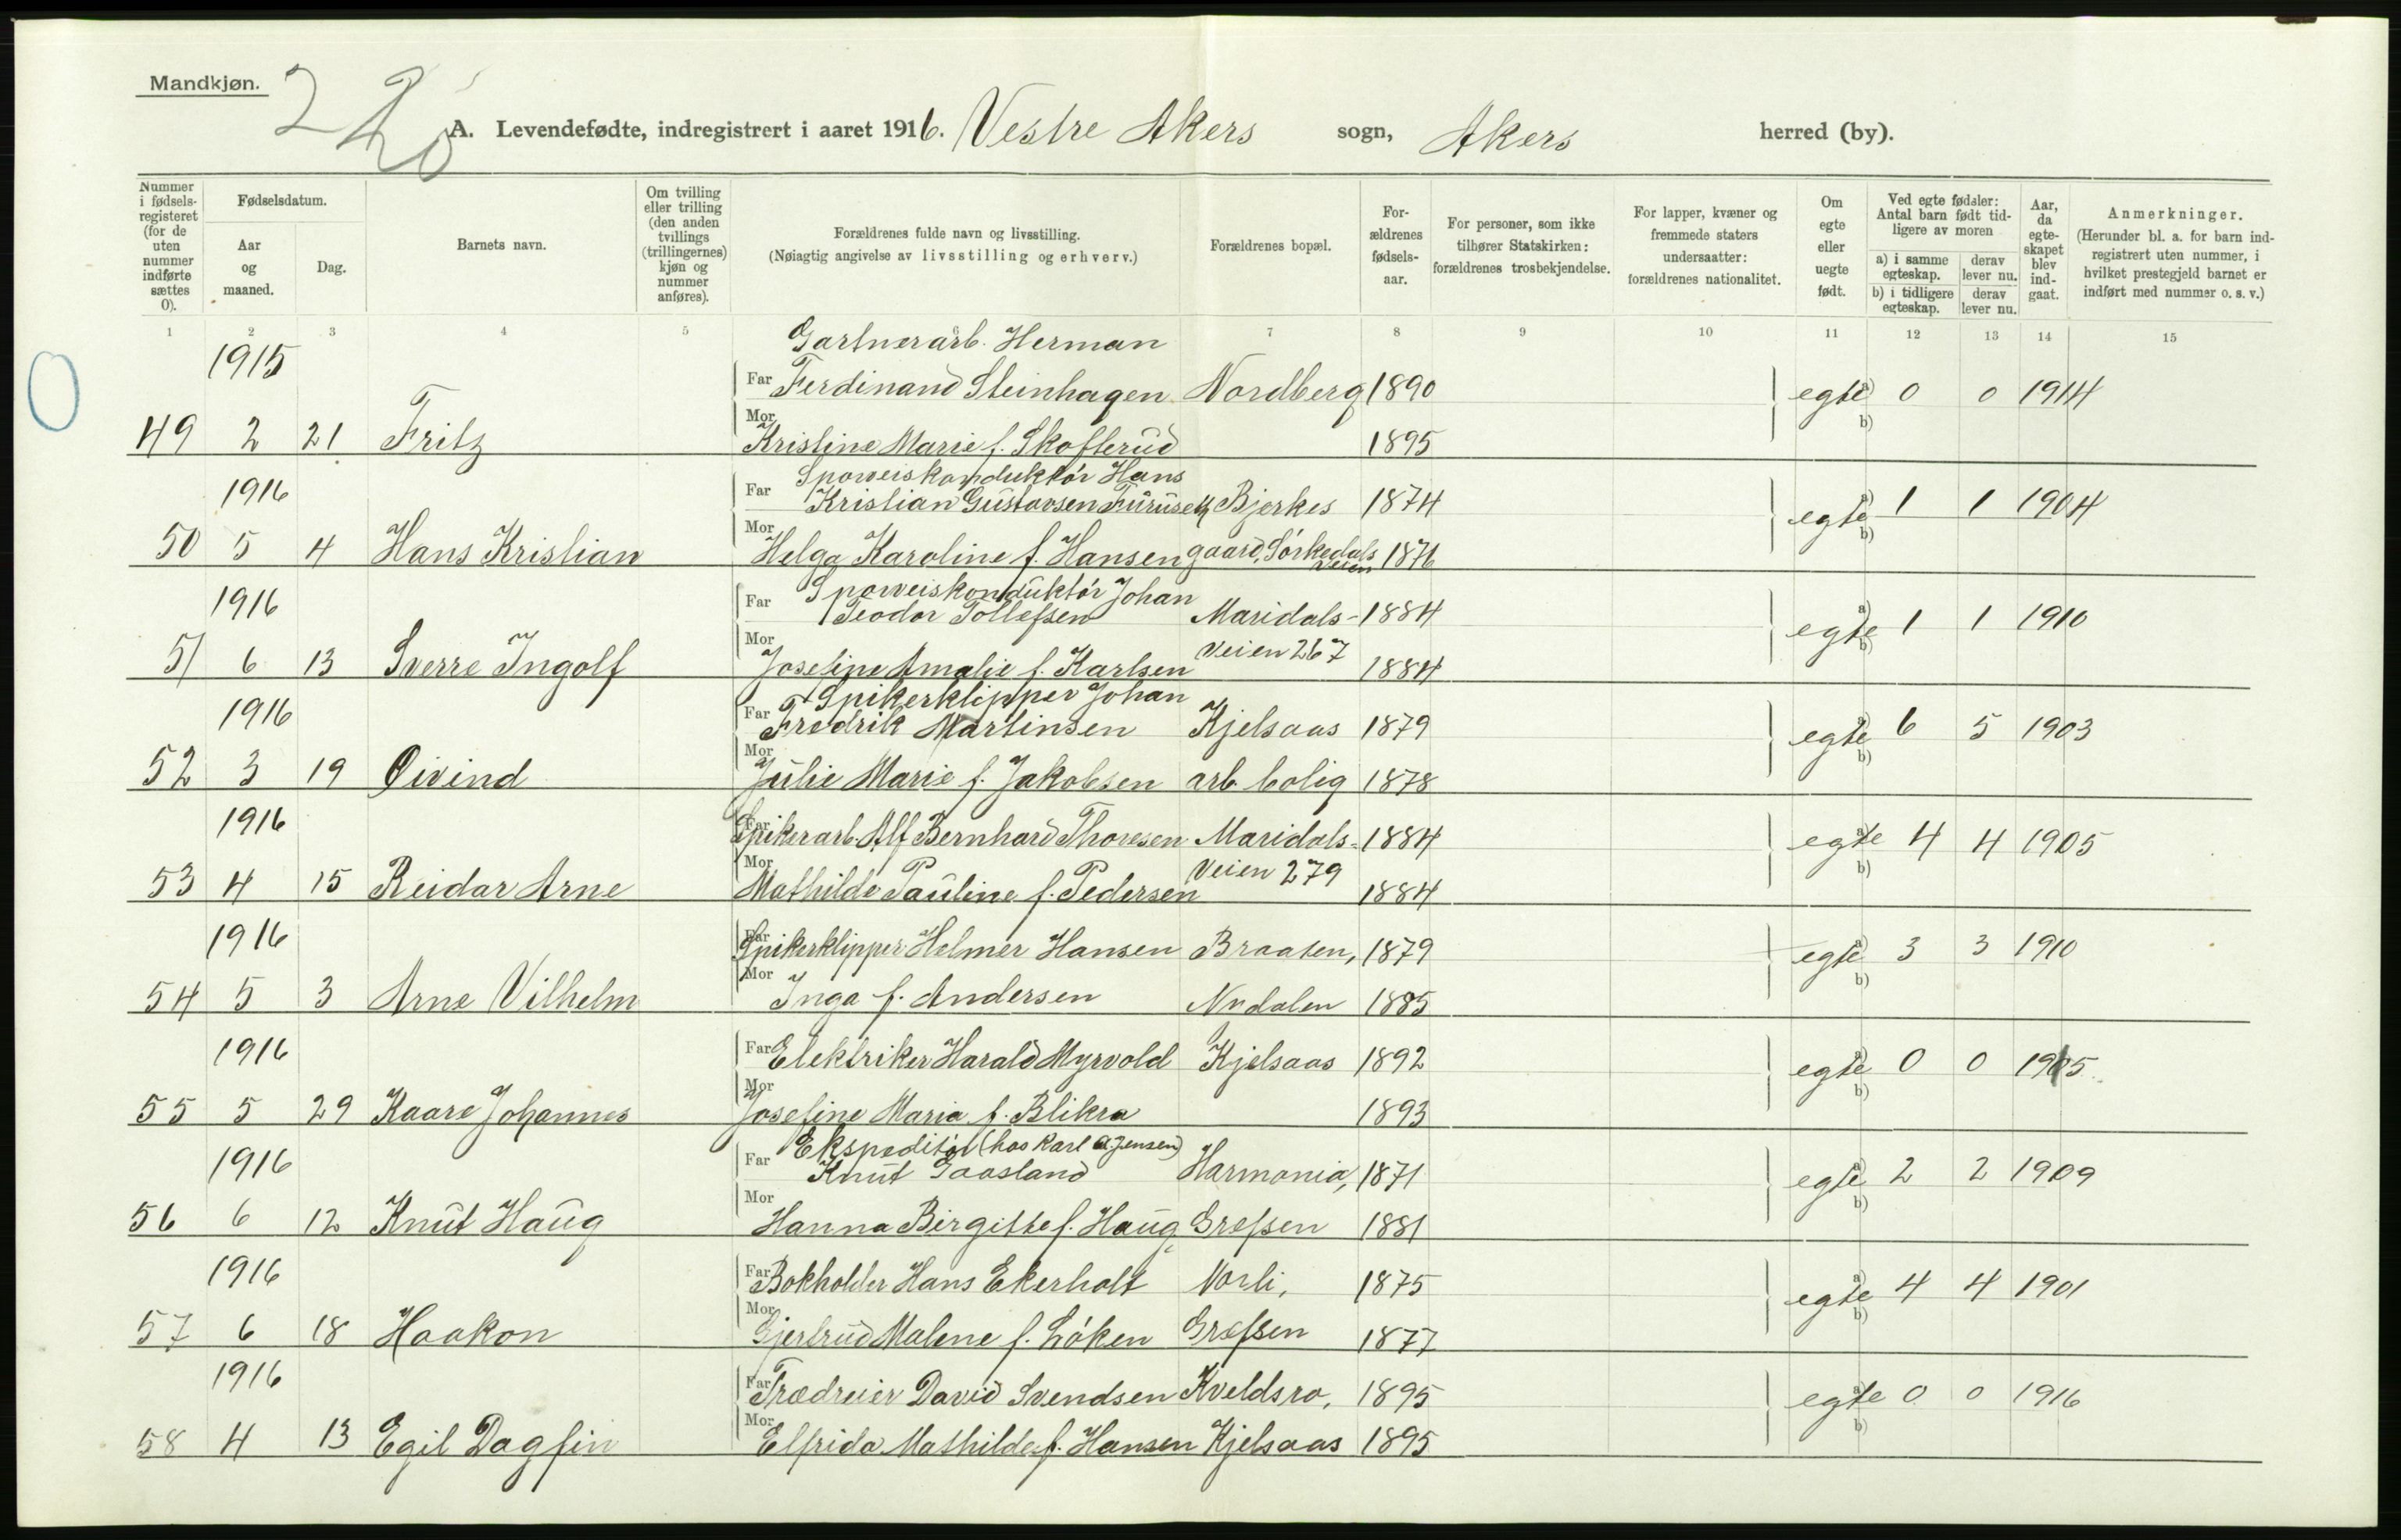 Mandkjøn.
A. Levendefødte, indregistrert i aaret 1916. Vestre Akers sogn, Akers herred (by).
Nummer i fødselsregisteret (for de uten nummer indførte sættes 0).
Fødselsdatum.
Aar og maaned.
Dag.
Barnets navn.
Om tvilling eller trilling (den anden tvillings (trillingernes) kjøn og nummer anføres).
Forældrenes fulde navn og livsstilling.
(Nøiagtig angivelse av livsstilling og erhverv.)
Forældrenes bopæl.
Forældrenes fødselsaar.
For personer, som ikke tilhører Statskirken: forældrenes trosbekjendelse.
For lapper, kvæner og fremmede staters undersaatter: forældrenes nationalitet.
Om egte eller uegte født.
Ved egte fødsler: Antal barn født tidligere av moren
a) i samme egteskap. derav lever nu.
b) i tidligere egteskap. derav lever nu.
Aar, da egteskapet blev indgaat.
Anmerkninger.
(Herunder bl. a. for barn indregistrert uten nummer, i hvilket prestegjeld barnet er indført med nummer o. s. v.)
1 2 3 4 5 6 7 8 9 10 11 12 13 14 15
Gartnerarb. Herman
1915 Far Ferdinand Steinhagen Nordberg 1890 egte a) 0 0 1914
49 2 21 Fritz Mor Kristine Marie f. Skofterud 1895 b)
Sporveiskonduktör Hans
1916 Far Kristian Gustavsen Furuseth Bjerkes 1874 egte a) 1 1 1904
50 5 4 Hans Kristian Mor Helga Karoline f. Hansen gaard, Sörkedals veien 1876 b)
Sporveiskonduktör Johan
1916 Far Teodor Tollefsen Maridals- 1884 egte a) 1 1 1910
51 6 13 Sverre Ingolf Mor Josefine Amalie f. Karlsen Veien 267 1884 b)
Spikerklipper Johan
1916 Far Fredrik Martinsen Kjelsaas 1879 egte a) 6 5 1903
52 3 19 Öivind Mor Julie Marie f. Jakobsen arb. bolig 1878 b)
1916 Far Spikerarb. Alf Bernhard Thoresen Maridals- 1884 egte a) 4 4 1905
53 4 15 Reidar Arne Mor Mathilde Pauline f. Pedersen Veien 279 1884 b)
1916 Far Spikerklipper Helmer Hansen Braaten, 1879 egte a) 3 3 1910
54 5 3 Arne Vilhelm Mor Inga f. Andersen Nydalen 1885 b)
1916 Far Elektriker Harald Myrvold Kjelsaas 1892 egte a) 0 0 1915
55 5 29 Kaare Johannes Mor Josefine Maria f. Blikra 1893 b)
Ekspeditör (hos Karl A. Jensen)
1916 Far Knut Gaasland Harmonia, 1871 egte a) 2 2 1909
56 6 12 Knut Haug Mor Hanna Birgitte f. Haug Grefsen 1881 b)
1916 Far Bokholder Hans Ekerholt Norli, 1875 egte a) 4 4 1901
57 6 18 Haakon Mor Gjertrud Malene f. Löken Grefsen 1877 b)
1916 Far Trædreier David Svendsen Kveldsro, 1895 egte a) 0 0 1916
58 4 13 Egil Dagfin Mor Elfrida Mathilde f. Hansen Kjelsaas 1895 b)